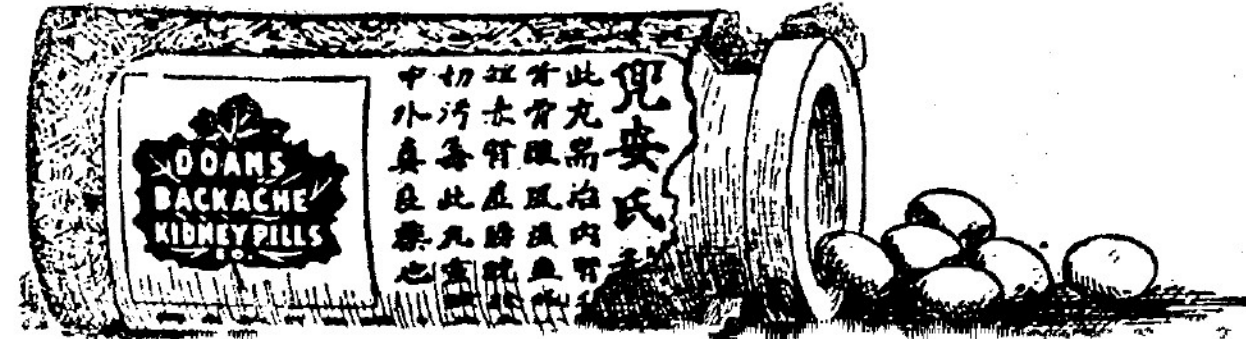 DOANS
BACKACHE
KIDNEY PILLS
兜安氏
此丸耑治內腎
骨酸風濕血
赤腎膀胱
切污毒此丸
中外真良藥也